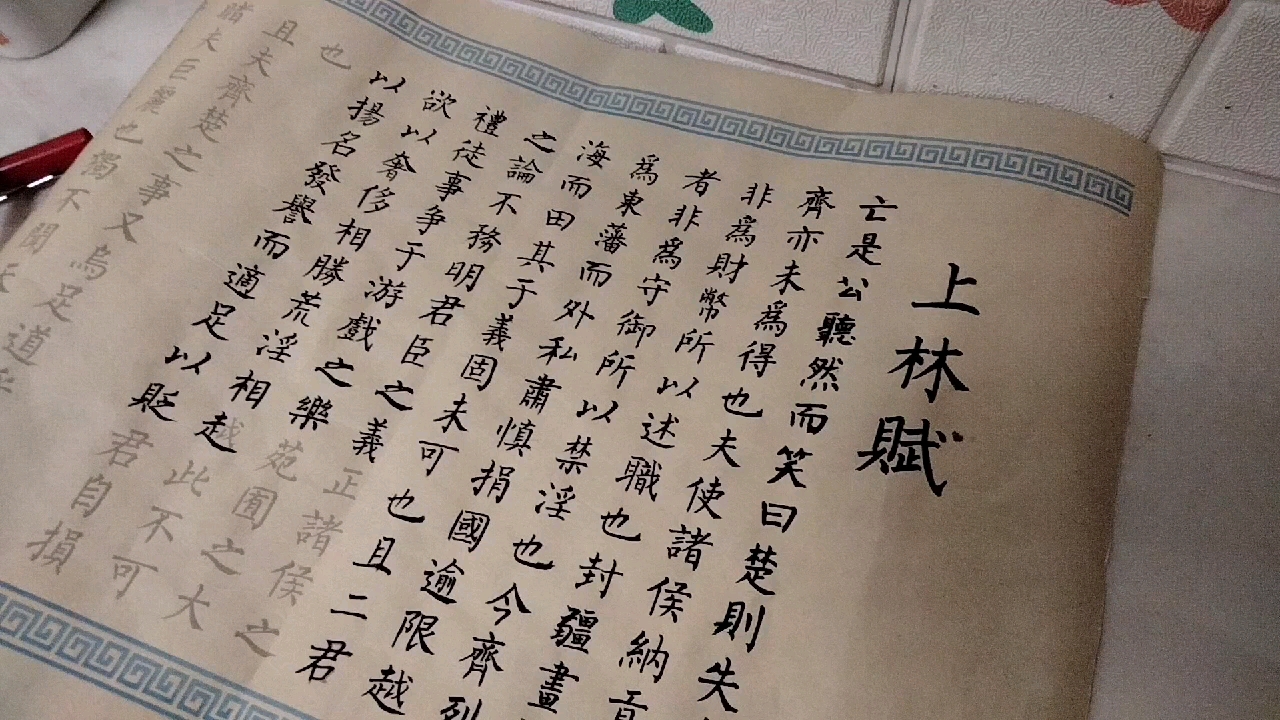 上林賦
亡是公聽然而笑曰楚則失
齊亦未爲得也夫使諸侯納貢
非爲財幣所以述職也封疆畫
者非爲守御所以禁淫也今齊列
爲東藩而外私肅慎捐國逾限越
海而田其于義固未可也且二君
之論不務明君臣之義正諸侯之
禮徒事争于游戲之樂苑囿之大
欲以奢侈相勝荒淫相越此不可
以揚名發譽而適足以貶君自損
也
且夫齊楚之事又烏足道乎
睹夫巨麗也獨不聞天